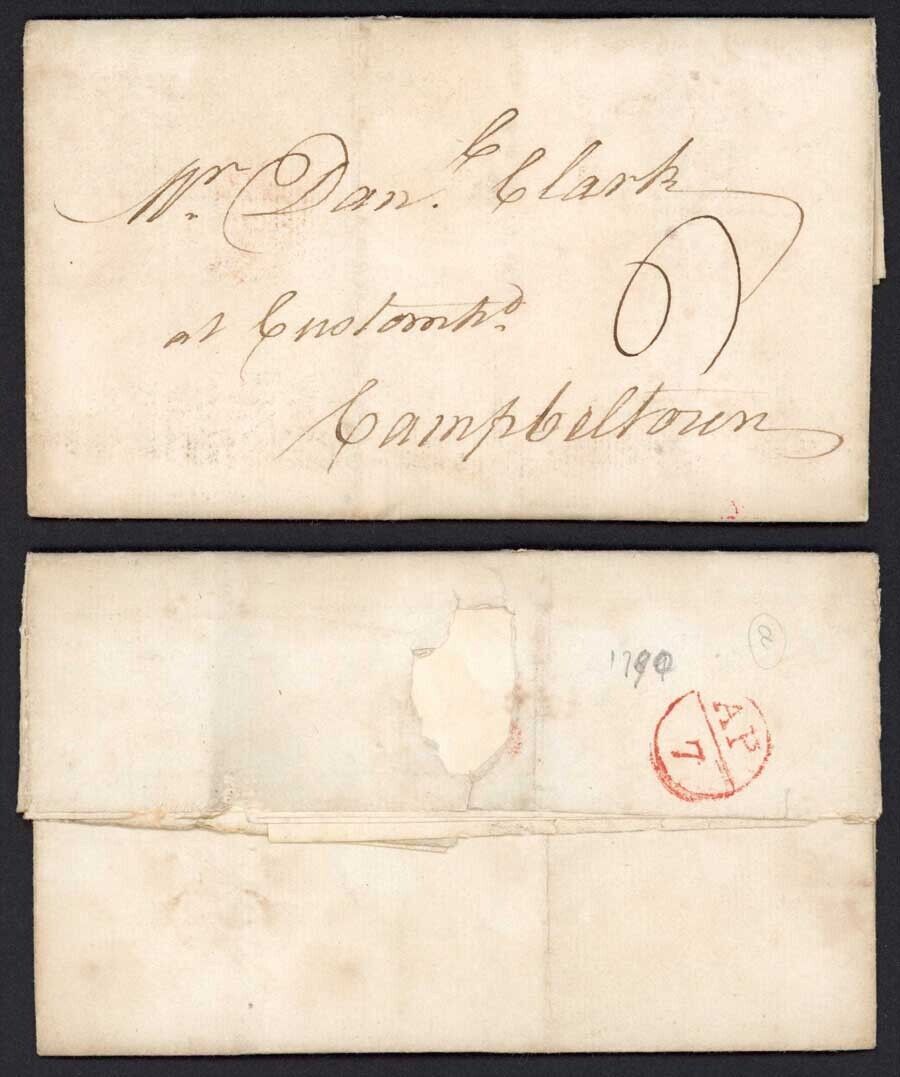 Mr. Dan.l Clark
at Customhs.
6
Campbeltown
a
1790
AP
7